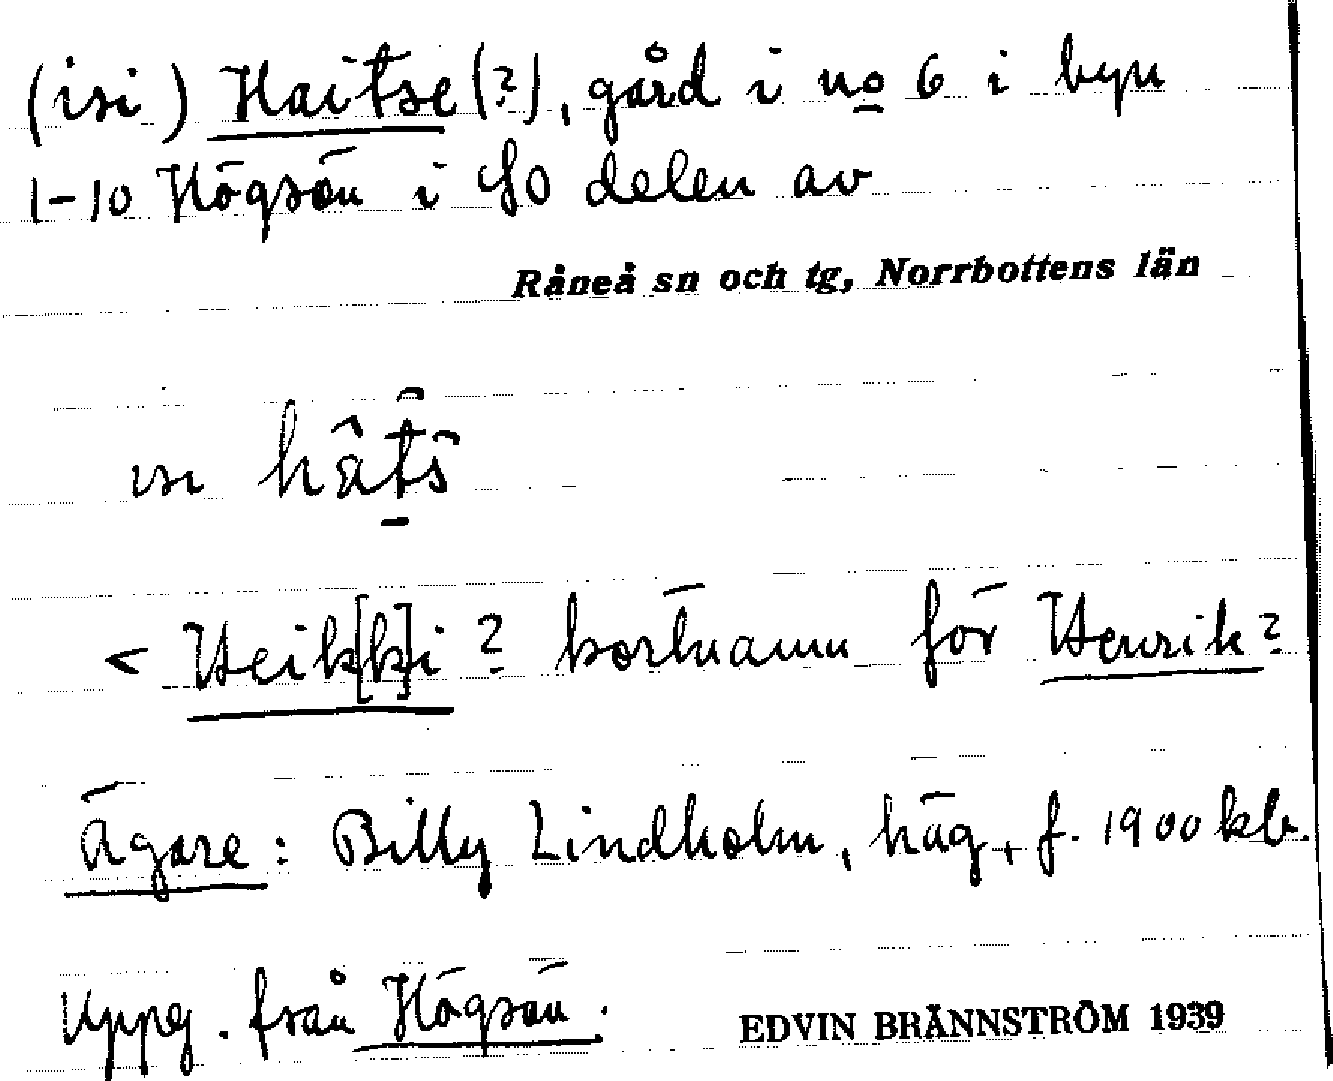 (isi) Haitse (?), gård i no 6 i byn
1-10 Högsön i SO delen av
Råneå sn och tg, Norrbottens län
ısı hâts̑
< Heik[k]i? kortnamn för Henrik?
Ägare: Billy Lindholm, häg, f. 1900 kb.
Uppg. från Högsön.
EDVIN BRÄNNSTRÖM 1939